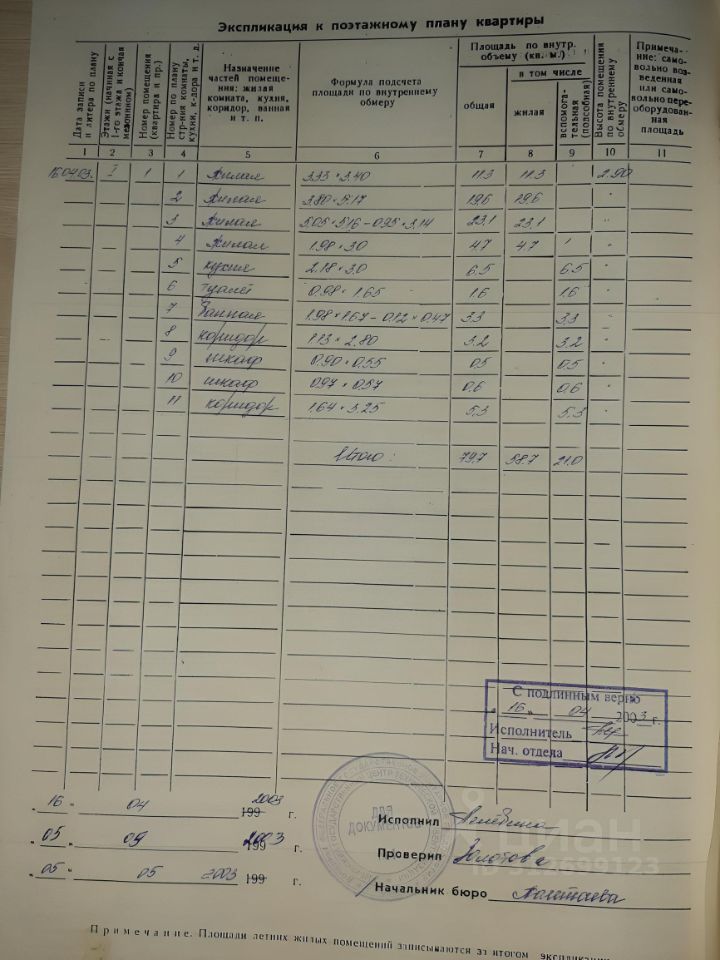 Экспликация к поэтажному плану квартиры
Дата записи и литера по плану
Этажи (начиная с 1-го этажа и кончая мезонином)
Номер помещения (квартира и пр.)
Номер по плану стр-ния комнаты, кухни, к-дора и т. д.
Назначение частей помещения: жилая комната, кухня, коридор, ванная и т. п.
Формула подсчета площади по внутреннему обмеру
Площадь по внутр. объему (кв. м.)
в том числе
общая
жилая
вспомогательная (подсобная)
Высота помещения по внутреннему обмеру
Примечание: самовольно возведенная или самовольно переоборудованная площадь
1 2 3 4 5 6 7 8 9 10 11
16.04.03. I 1 1 жилая 3.33 × 3.40 11.3 11.3 2.90
2 жилая 3.80 × 5.17 19.6 19.6
3 жилая 5.05 × 5.16 – 0.95 × 3.14 23,1 23,1
4 жилая 1.98 × 3.0 4.7 4.7
5 кухня 2.18 × 3.0 6.5 6.5
6 туалет 0.98 × 1.65 1.6 1.6
7 Ванная 1.98 × 1.67 – 0.12 × 0.47 3.3 3.3
8 коридор 1.13 × 2.80 3.2 3.2
9 шкаф 0.90 × 0.55 0.5 0.5
10 шкаф 0.97 × 0.57 0.6 0.6
11 коридор 1.64 × 3.25 5.3 5.3
Итого: 79,7 58.7 21.0
С подлинным верно
"16" 04 2003 г.
Исполнитель
Нач. отдела
"16" 04 2003 199 г.
Исполнил
ДЛЯ ДОКУМЕНТОВ
"05" 09 2003 199 г.
Проверил Золотова
"05" 05 2003 199 г.
Начальник бюро
циан
Примечание. Площади летних жилых помещений записываются за итогом